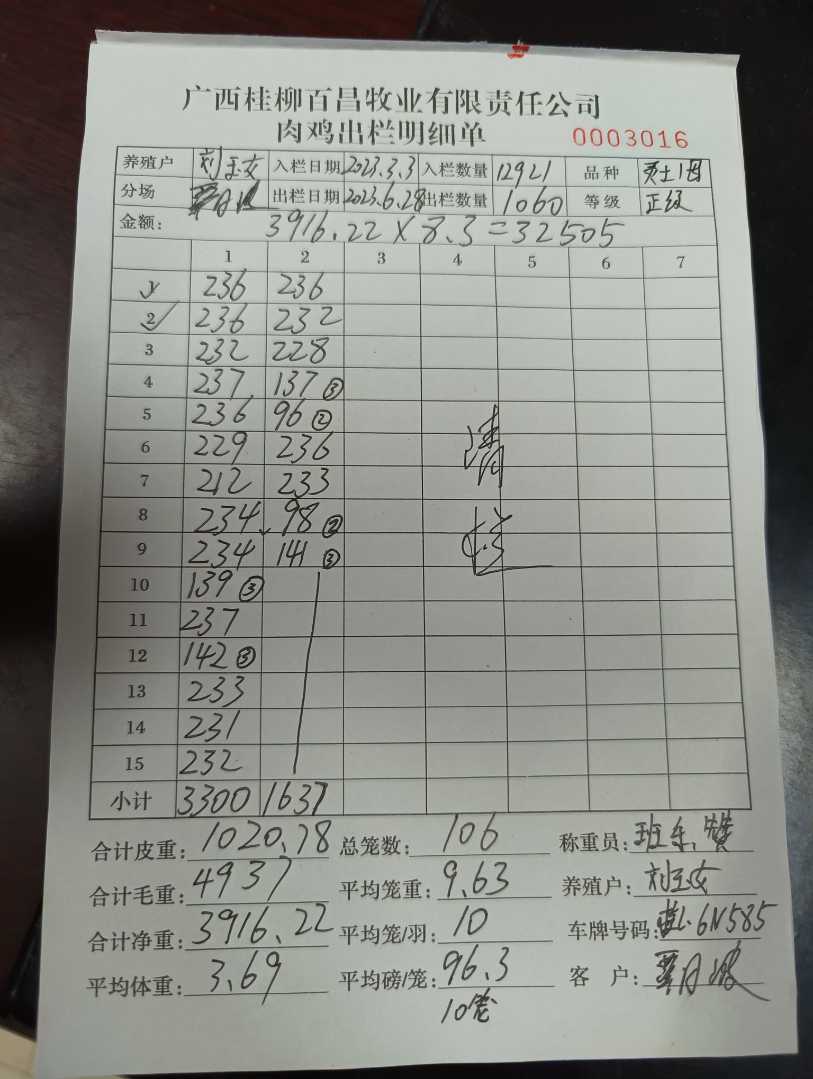 广西桂柳百昌牧业有限责任公司
肉鸡出栏明细单 0003016
养殖户 刘玉文 入栏日期 2023.3.3 入栏数量 12921 品种
分场 出栏日期 2023.6.28 出栏数量 1060 等级 正级
金额: 3916.22 X 8.3 = 32505
1 2 3 4 5 6 7
236 236
2 236 232
3 232 228
4 237 137 ③
5 236 96 ②
6 229 236
7 212 233
8 234 98 ②
9 234 141 ③
10 139 ③
11 237
12 142 ③
13 233
14 231
15 232
小计 3300 1637
清
合计皮重: 1020.78 总笼数: 106 称重员:
合计毛重: 4937 平均笼重: 9.63 养殖户: 刘玉文
合计净重: 3916.22 平均笼/羽: 10 车牌号码: L.6N585
平均体重: 3.69 平均磅/笼: 96.3 客 户:
10笼